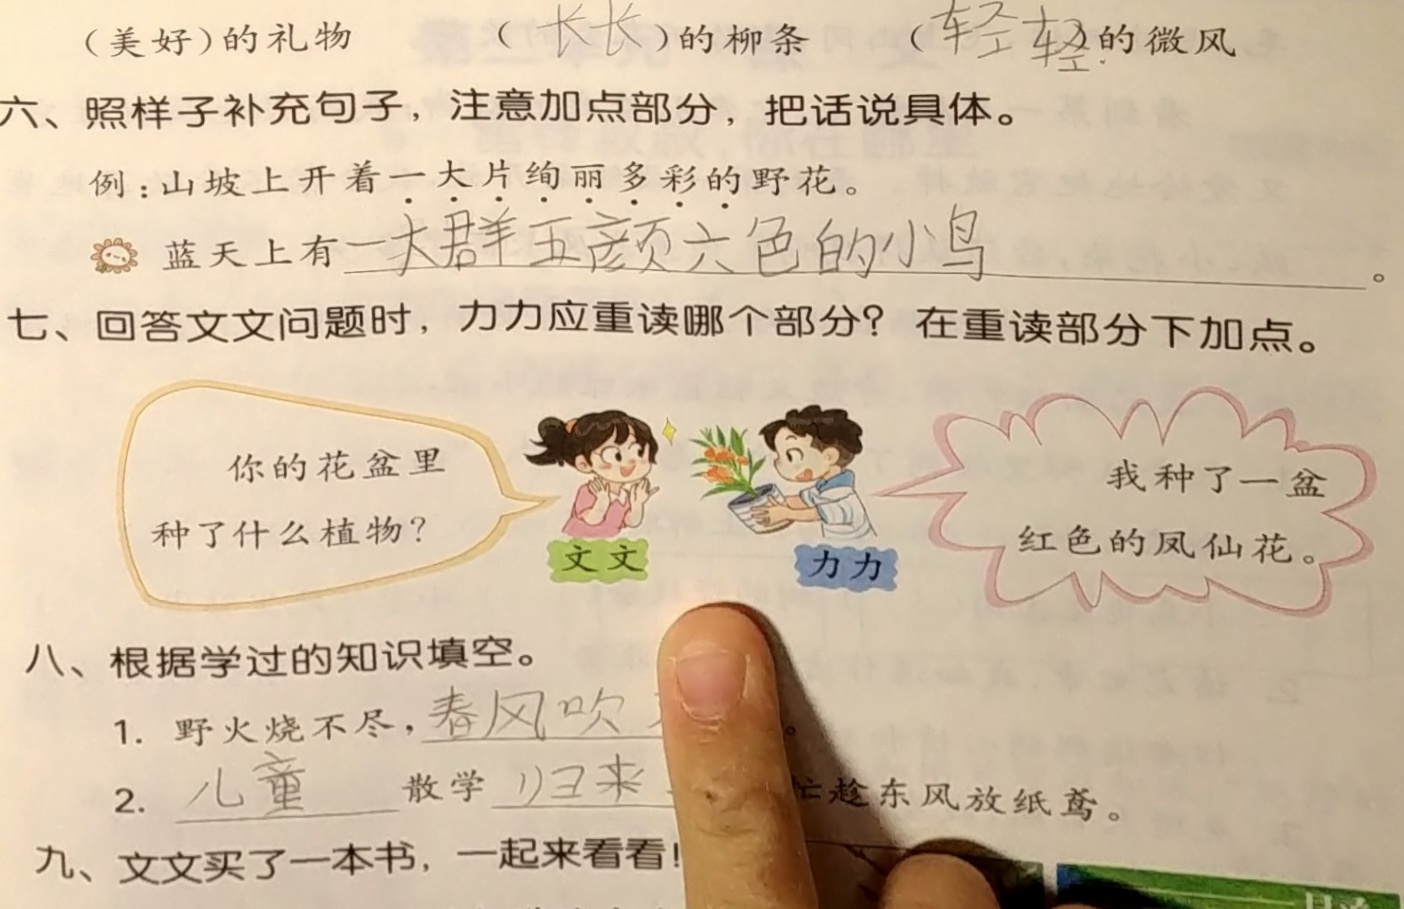 （美好）的礼物 （长长）的柳条 （轻轻）的微风
六、照样子补充句子，注意加点部分，把话说具体。
例：山坡上开着一大片绚丽多彩的野花。
蓝天上有一大群五颜六色的小鸟。
七、回答文文问题时，力力应重读哪个部分？在重读部分下加点。
你的花盆里
种了什么植物？
文文
力力
我种了一盆
红色的凤仙花。
八、根据学过的知识填空。
1. 野火烧不尽，春风吹 。
2. 儿童 散学 归来 忙趁东风放纸鸢。
九、文文买了一本书，一起来看看！